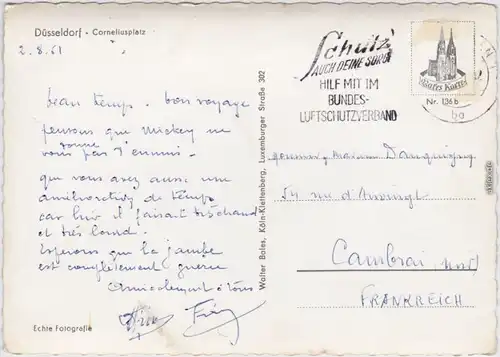 Düsseldorf - Corneliusplatz
2.8.61
beau temps - bon voyage
pensons que Mickey ne
donne
vous pas d'ennuis -
que vous avez aussi une
amélioration de temps
car hier il faisait très chaud
et très lourd.
Espérons que la jambe
est complètement guérie
Amicalement à tous
Echte Fotografie
Walter Boles, Köln-Klettenberg, Luxemburger Straße 302
Schutz
AUCH DEINE SORGE
HILF MIT IM
BUNDES-
LUFTSCHUTZVERBAND
Nr. 136 b
54 rue d'
Cambrai (Nord)
FRANKREICH